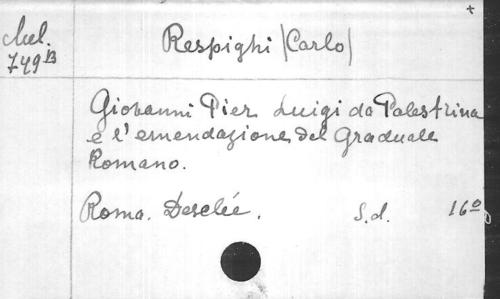 Mel.
749B
Respighi (Carlo)
Giovanni Pier Luigi da Palestrina
e l'emendazione del Graduale
Romano.
Roma. Desclée. S.d. 16°